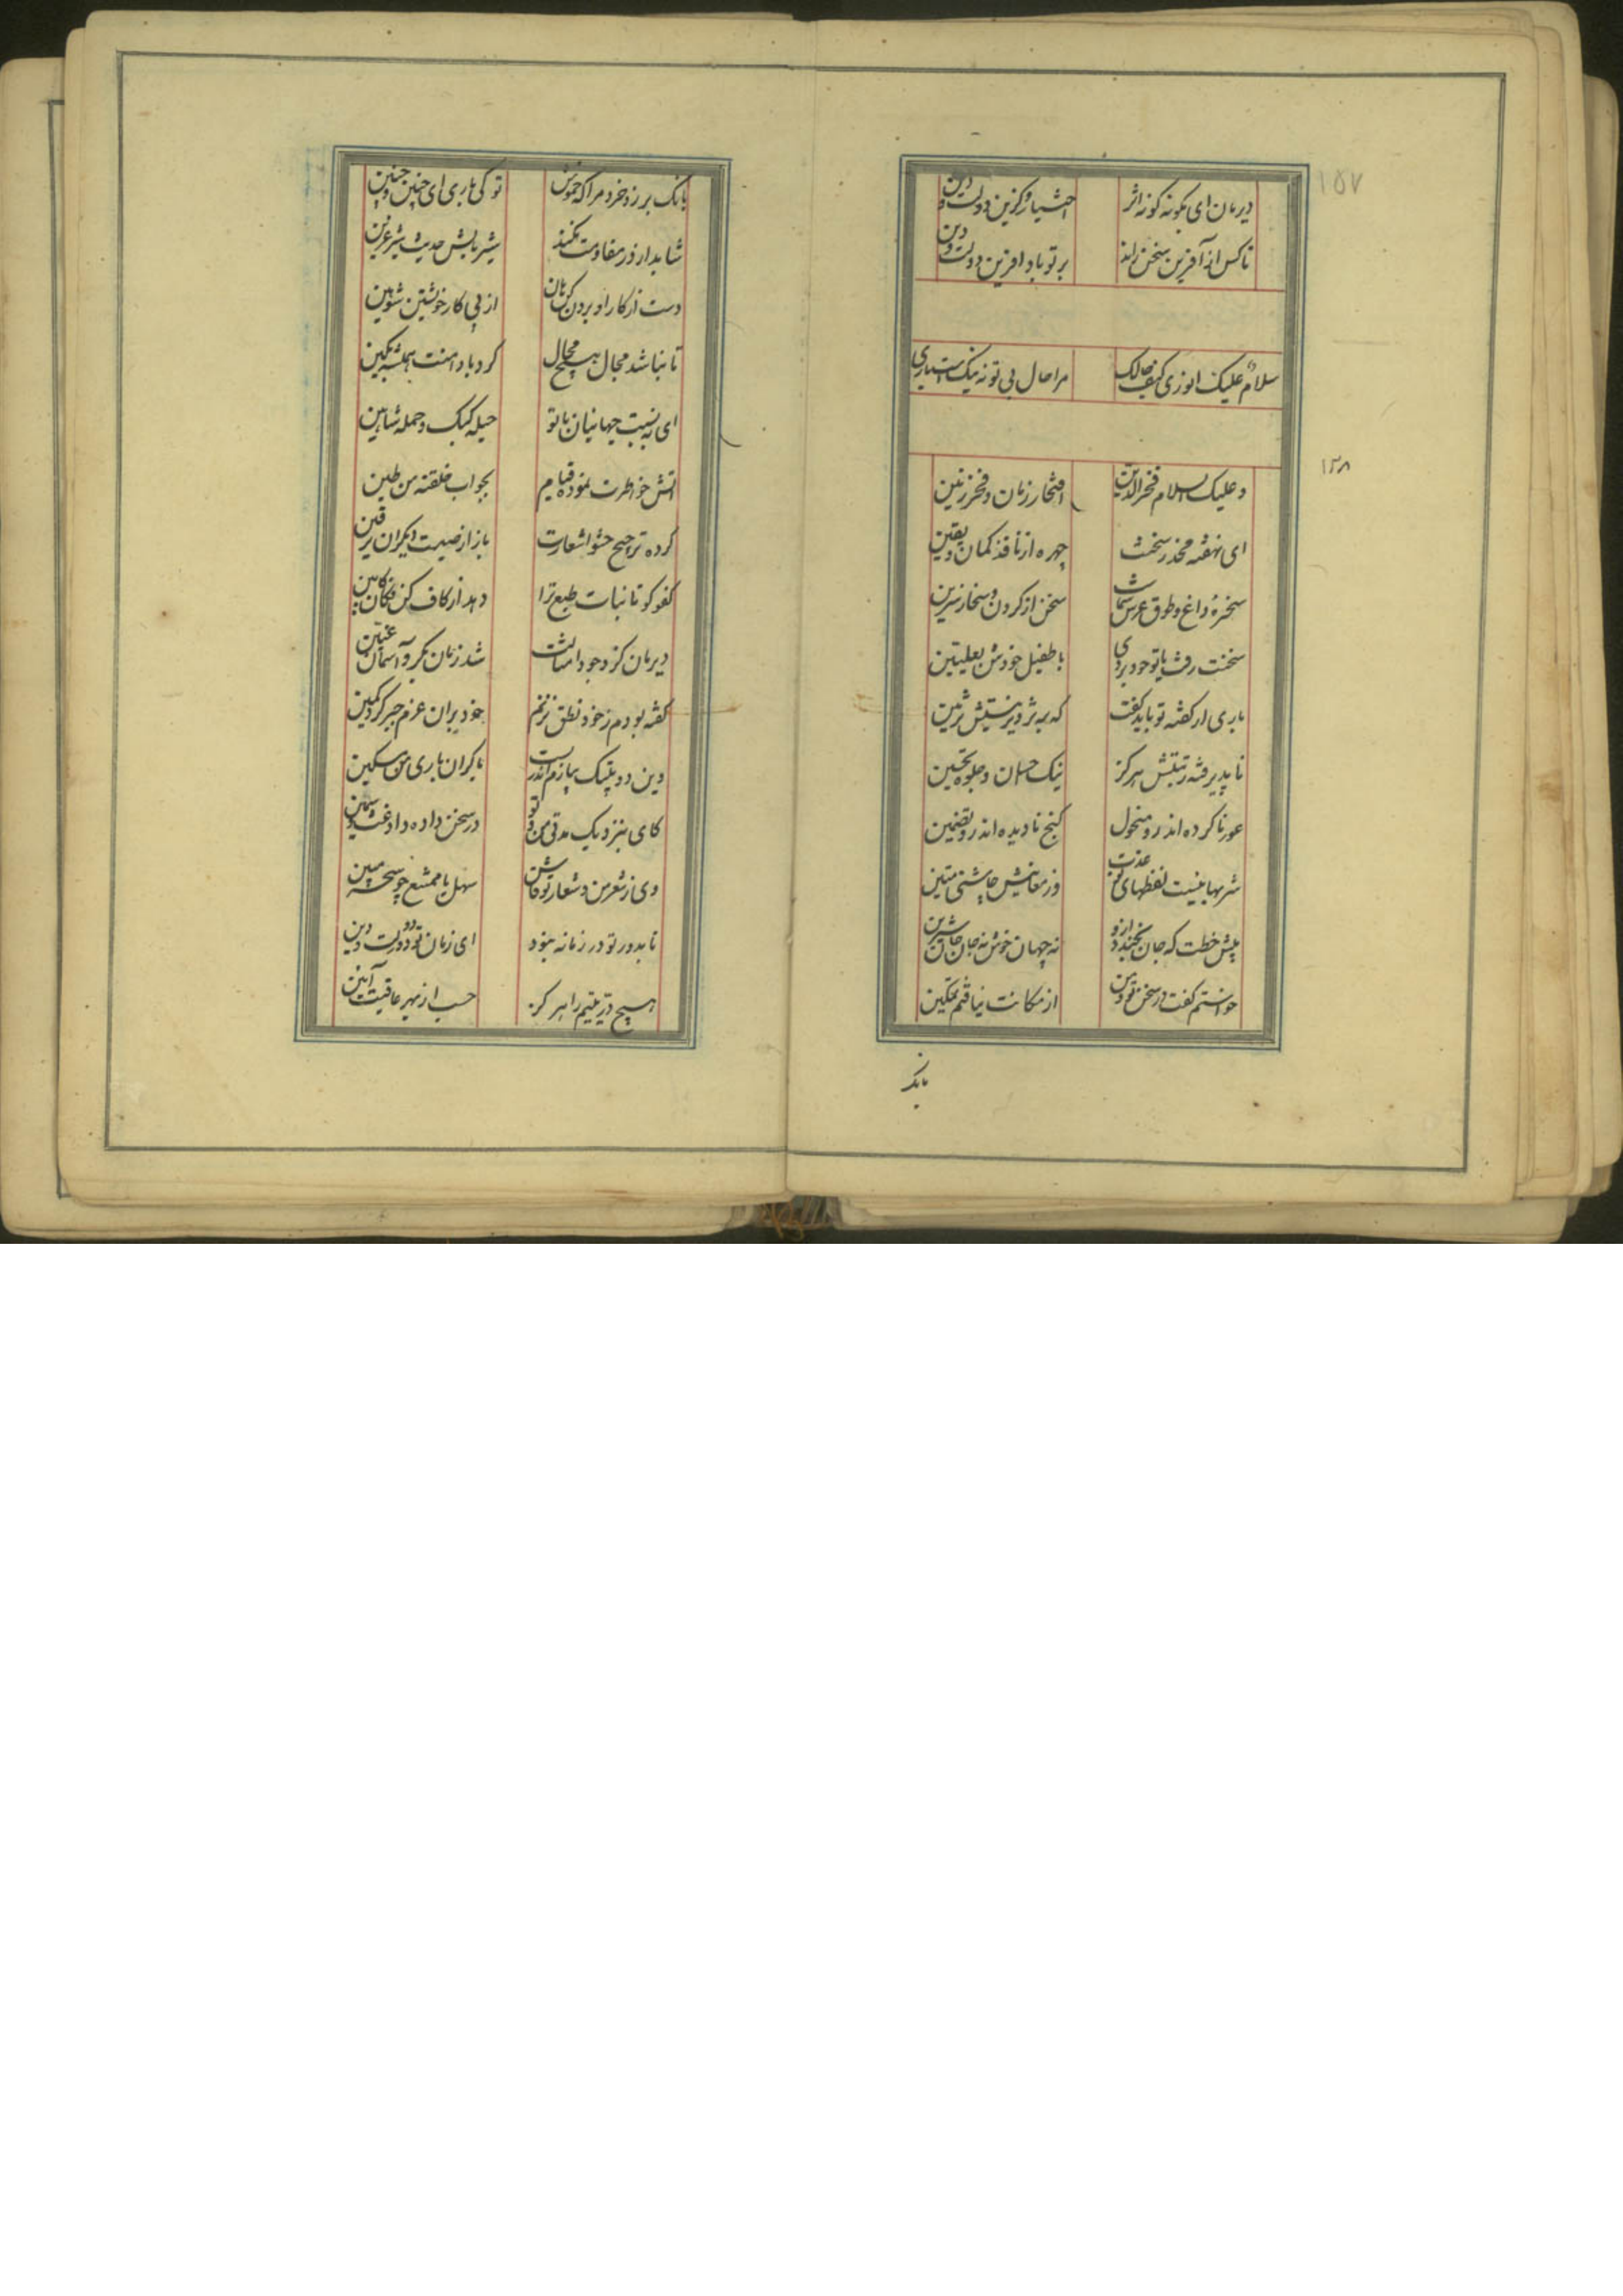 ۱۵۷
دیرمان ای بکونه کونه اثر اختیار گزین دولت و دین
تا کس از آفرین سخن راند بر تو باد آفرین دولت و دین
سلام علیک انوری کیف حالک مرا حال بی تو نه نیکست باری
۱۳۸
و علیک السلام فخرالدین افتخار زمان و فخر زمین
ای نهفته مخدر سخنت چهره از نافذ کمان و یقین
سخره داغ و طوق عرش سخن از کردن و سرین
سخنت رفت با تو خود بردی با طفیل خودش بعلیین
باری ار کفته تو باید کفت که به
ناپذیرفته رتبتش هرکز نیک حسان و جلوه تحسین
عور ناکرده اندرو منحول کنج نادیده اندرو تضمین
شربها نیست لفظهای عذبت وز معانیش چاشنی متین
پیش خطت که جان بخندد ازو نه جهان خوش نه جان شیرین
خواستم کفت در سخن تو و من از مکانت نیافتم تمکین
بانک
بانک بر زد خرد مرا که خموش تو کی باری ای چنین و چنین
شاید ار در مقاومت نکند شیر بالش حدیث شیر عرین
دست از کار او بردن کن هان از پی کار خویشتن بنشین
تا نباشد مجال هیچ محال کرد بادامنت
ای به نسبت جهانیان با تو حیله کبک و حمله شاهین
آتش خواطرت نموده قیام بجواب خلقته من طین
کرده ترجیح حشو اشعارت باز از صیت دیکران
کفو کو تا نبات طبع ترا دهد از کاف کن فکان کابین
دیرمان کز وجود امثالت شد زمان بکر و آسمان عنین
کفته بودم ز خود نطق نزنم خود بران عزم جبر کرد کمین
وین دو پیتک بیارم اندر بست با کران باری من مسکین
کای بنزدیک مدتی من و تو در سخن داده داد غث و سمین
وی ز شعر من و شعار تو فاش سهل با ممتنع چو سحر مبین
نا بدور تو در زمانه نبود ای زمان تو دور دولت و دین
هیچ دریتیم را هرکز حسب از بهر عاقبت آیین